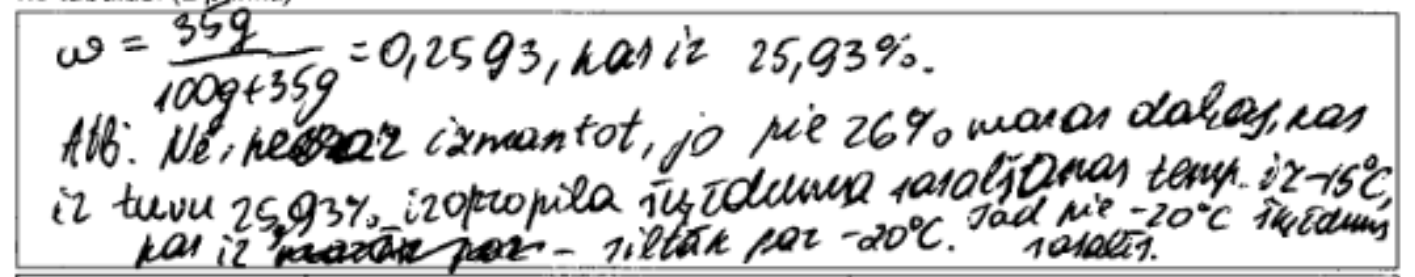 ω = 35g / 100g+35g = 0,2593, kas ir 25,93%.
Atb: Nē, nevar izmantot, jo pie 26% masas daļas, kas
ir tuvu 25,93%, izopropila šķīduma sasalšanas temp. ir -15°C,
kas ir - siltāk par -20°C. Tad pie -20°C šķīdums
sasalis.